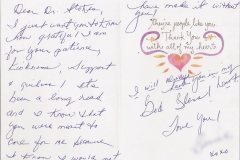 Dear Dr.
I just want you to know
how grateful I am
for your patience,
Kindness, Support
& guidance! It's
been a long road
and I know that
you were meant to
care for me because
I know I would not
have made it without
you!
people like you
Thank You
with all of my heart
I will always
you in my heart
God Bless!
Love You!
xoxo